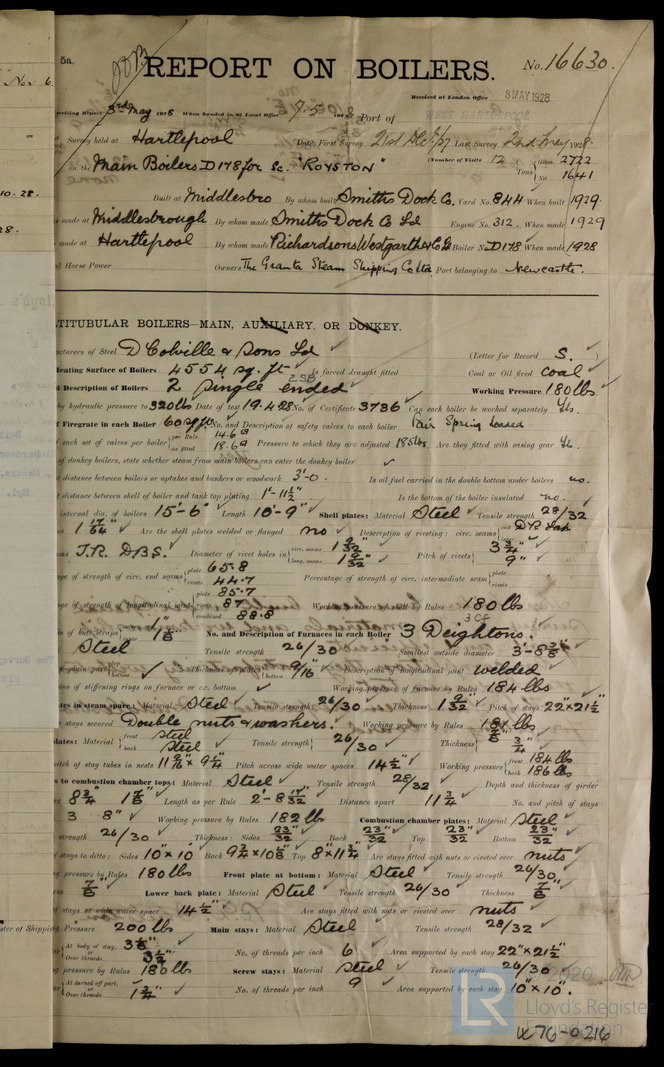 Nov. 6.
5a.
REPORT ON BOILERS.
No. 16630.
Received at London Office 8 MAY 1928
3rd May 1928 When handed in at Local Office 7-5 1928 Port of
Survey held at Hartlepool Date, First Survey Last Survey 2nd May 1928
on the Main Boilers D178 for Sc. "ROYSTON" (Number of Visits 12) Tons Gross 2722 Net 1641
10.28. Built at Middlesbro By whom built Smiths Dock Co. Yard No. 844 When built 1929
made at Middlesbrough By whom made Smiths Dock Co Ld Engine No. 312 When made 1929
made at Hartlepool By whom made Richardsons Westgarth & Co Ld Boiler No. D178 When made 1928
Horse Power Owners The Granta Steam Shipping Co Ltd Port belonging to Newcastle.
TITUBULAR BOILERS—MAIN, AUXILIARY, OR DONKEY.
cturers of Steel D Colville & Sons Ld (Letter for Record S.)
Heating Surface of Boilers 4554 sq. ft Is forced draught fitted Coal or Oil fired coal
Description of Boilers 2 Single ended 2SB Working Pressure 180 lbs
by hydraulic pressure to 320 lbs Date of test 19.4.28 No. of Certificate 3736 Can each boiler be worked separately Yes.
of Firegrate in each Boiler 60 sq ft No. and Description of safety valves to each boiler Pair Spring Loaded
each set of valves per boiler per Rule 14.6 as fitted 18.6 Pressure to which they are adjusted 185 lbs. Are they fitted with easing gear Yes.
of donkey boilers, state whether steam from main boilers can enter the donkey boiler
distance between boilers or uptakes and bunkers or woodwork 3'-0. Is oil fuel carried in the double bottom under boilers no.
distance between shell of boiler and tank top plating 1'-11½" Is the bottom of the boiler insulated no.
internal dia. of boilers 15'-6" Length 10'-9" Shell plates: Material Steel Tensile strength 28/32
1 17/64" Are the shell plates welded or flanged no Description of riveting: circ. seams end D.R. Lap
T.R. D.B.S. Diameter of rivet holes in circ. seams 1 9/32" long. seams 1 9/32" Pitch of rivets 3¾" 9"
ge of strength of circ. end seams plate 65.8 rivets 44.7 Percentage of strength of circ. intermediate seam plate rivets
ge of strength of longitudinal plate 85.7 rivets 87 combined 88.8 Working pressure of shell by Rules 180 lbs
of butt straps 1⅛" No. and Description of Furnaces in each Boiler 3 Deightons.
Steel Tensile strength 26/30 Smallest outside diameter 3'-8⅜"
plain part bottom bottom 9/16" Description of longitudinal joint welded
ns of stiffening rings on furnace or c.c. bottom Working pressure of furnace by Rules 184 lbs
tes in steam space: Material Steel Tensile strength 26/30 Thickness 1 9/32" Pitch of stays 22"x21½"
stays secured Double nuts & washers. Working pressure by Rules 181 lbs
lates: Material front Steel back Steel Tensile strength 26/30 Thickness ⅞" ¾"
itch of stay tubes in nests 11 9/16" x 9¼" Pitch across wide water spaces 14½" Working pressure front 184 lbs back 186 lbs
to combustion chamber tops: Material Steel Tensile strength 28/32 Depth and thickness of girder
re 8¾" 1⅞" Length as per Rule 2'-8 Distance apart 11¾ No. and pitch of stays
3 8" Working pressure by Rules 182 lb Combustion chamber plates: Material Steel
strength 26/30 Thickness: Sides 23/32 Back 23/32 Top 23/32 Bottom 23/32
stays to ditto: Sides 10"x10" Back 9¾"x10⅛" Top 8"x11¾" Are stays fitted with nuts or riveted over nuts
pressure by Rules 180 lbs Front plate at bottom: Material Steel Tensile strength 26/30.
ess ⅞" Lower back plate: Material Steel Tensile strength 26/30 Thickness ⅞"
of stays at wide water space 14½" Are stays fitted with nuts or riveted over nuts
Pressure 200 lbs Main stays: Material Steel Tensile strength 28/32
At body of stay, 3⅜" Over threads 3½" No. of threads per inch 6 Area supported by each stay 22"x21½"
g pressure by Rules 180 lbs Screw stays: Material Steel Tensile strength 26/30
At turned off part, Over threads 1¾" No. of threads per inch 9 Area supported by each stay 10"x10".
ster of Shipping
LR
Lloyd's Register Foundation
2020
W76-0216